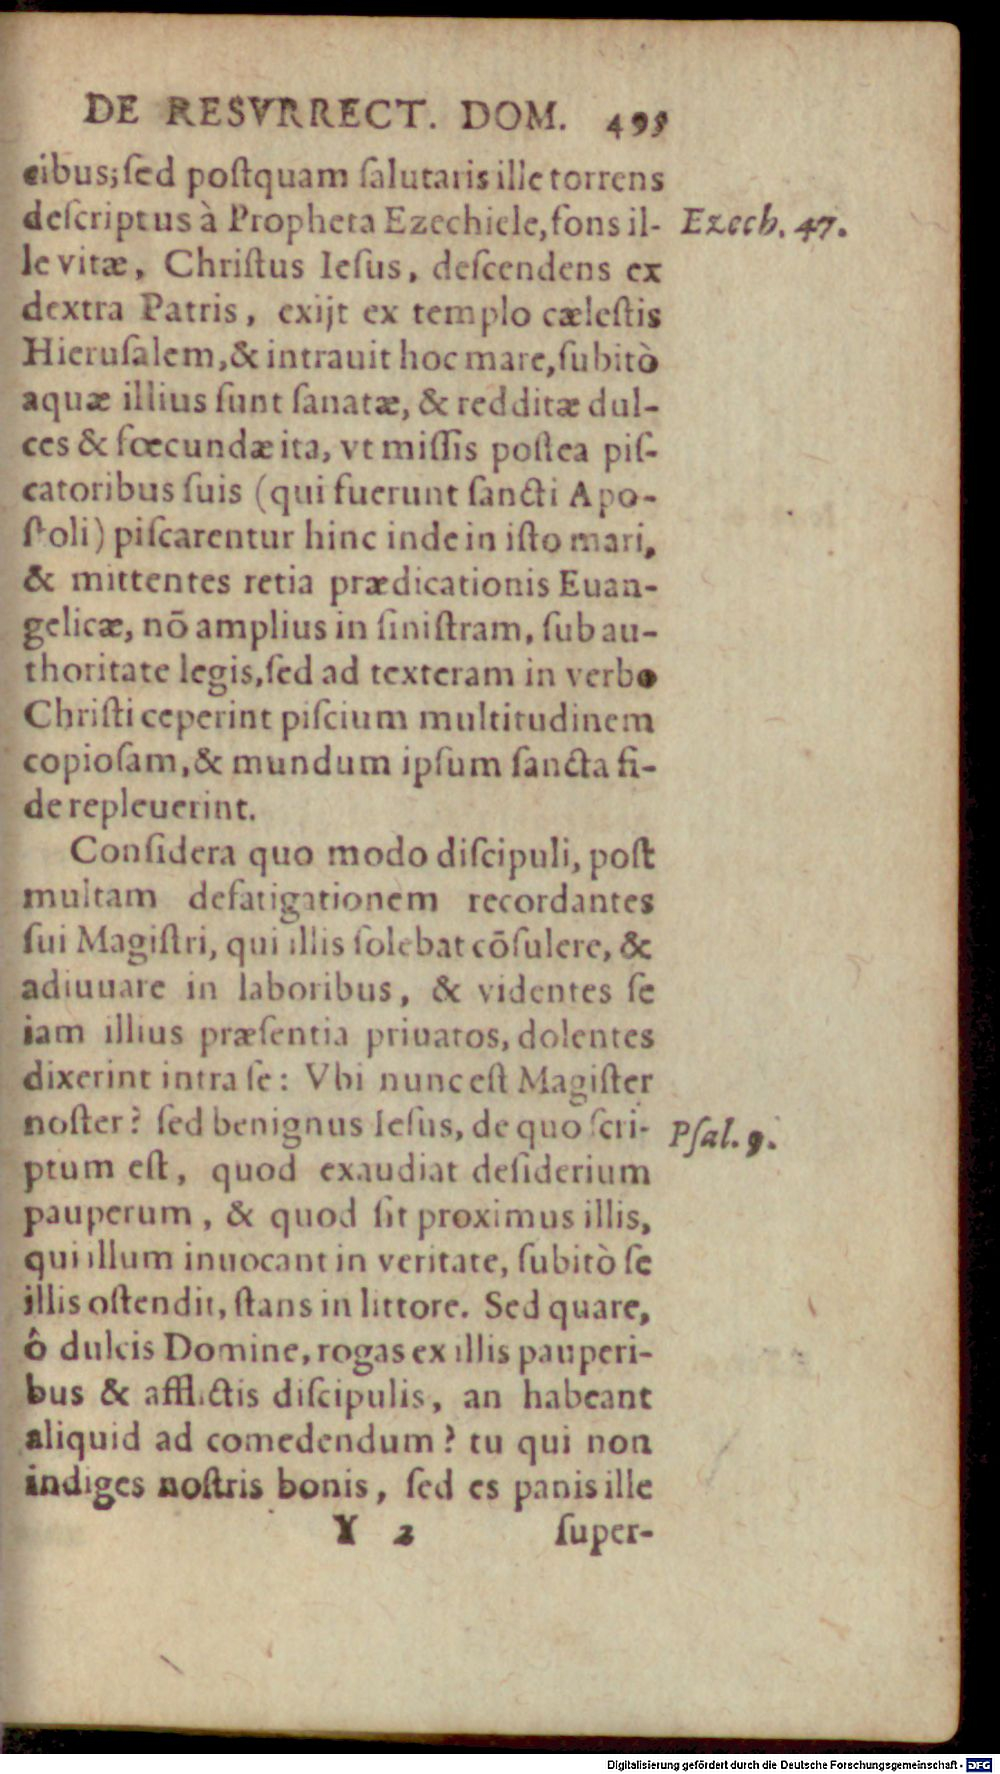 DE RESVRRECT. DOM. 495
cibus; sed postquam salutaris ille torrens
descriptus à Propheta Ezechiele, fons il- Ezech. 47.
le vitæ, Christus Iesus, descendens ex
dextra Patris, exijt ex templo cælestis
Hierusalem, & intrauit hoc mare, subitò
aquæ illius sunt sanatæ, & redditæ dul-
ces & fœcundæ ita, vt missis postea pis-
catoribus suis (qui fuerunt sancti Apo-
stoli) piscarentur hinc inde in isto mari,
& mittentes retia prædicationis Euan-
gelicæ, nō amplius in sinistram, sub au-
thoritate legis, sed ad texteram in verbo
Christi ceperint piscium multitudinem
copiosam, & mundum ipsum sancta fi-
de repleuerint.
Considera quo modo discipuli, post
multam defatigationem recordantes
sui Magistri, qui illis solebat cōsulere, &
adiuuare in laboribus, & videntes se
iam illius præsentia priuatos, dolentes
dixerint intra se: Vbi nunc est Magister
noster? sed benignus Iesus, de quo scri- Psal. 9.
ptum est, quod exaudiat desiderium
pauperum, & quod sit proximus illis,
qui illum inuocant in veritate, subitò se
illis ostendit, stans in littore. Sed quare,
ô dulcis Domine, rogas ex illis pauperi-
bus & afflictis discipulis, an habeant
aliquid ad comedendum? tu qui non
indiges nostris bonis, sed es panis ille
Y 2 super-
Digitalisierung gefördert durch die Deutsche Forschungsgemeinschaft - DFG